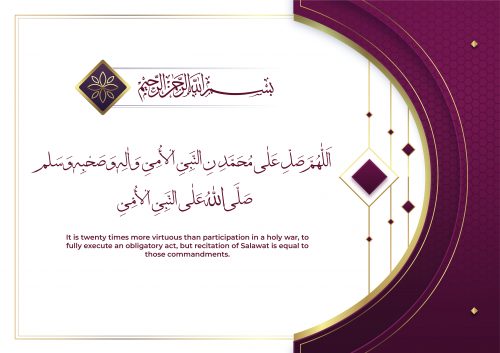 بسم الله الرحمن الرحيم
اَللّٰهُمَّ صَلِّ عَلٰى مُحَمَّدِنِ النَّبِيِّ الْأُمِّيِّ وَاٰلِهٖ وَصَحْبِهٖ وَسَلِّم
صَلَّى اللهُ عَلَى النَّبِيِّ الْأُمِّيِّ
It is twenty times more virtuous than participation in a holy war, to
fully execute an obligatory act, but recitation of Salawat is equal to
those commandments.